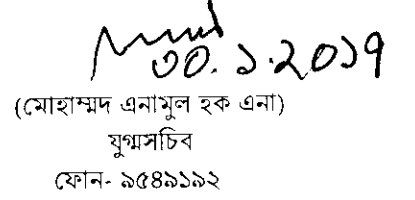 ৩০.১.২০১৭
(মোহাম্মদ এনামুল হক এনা)
যুগ্মসচিব
ফোন- ৯৫৪৯১৯২